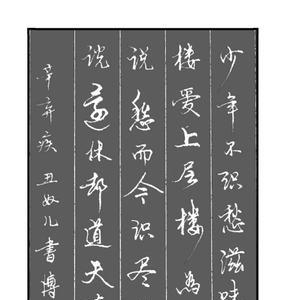 少年不识愁滋味
楼爱上层楼為
说愁而今识尽
说還休却道天
辛弃疾丑奴儿书博